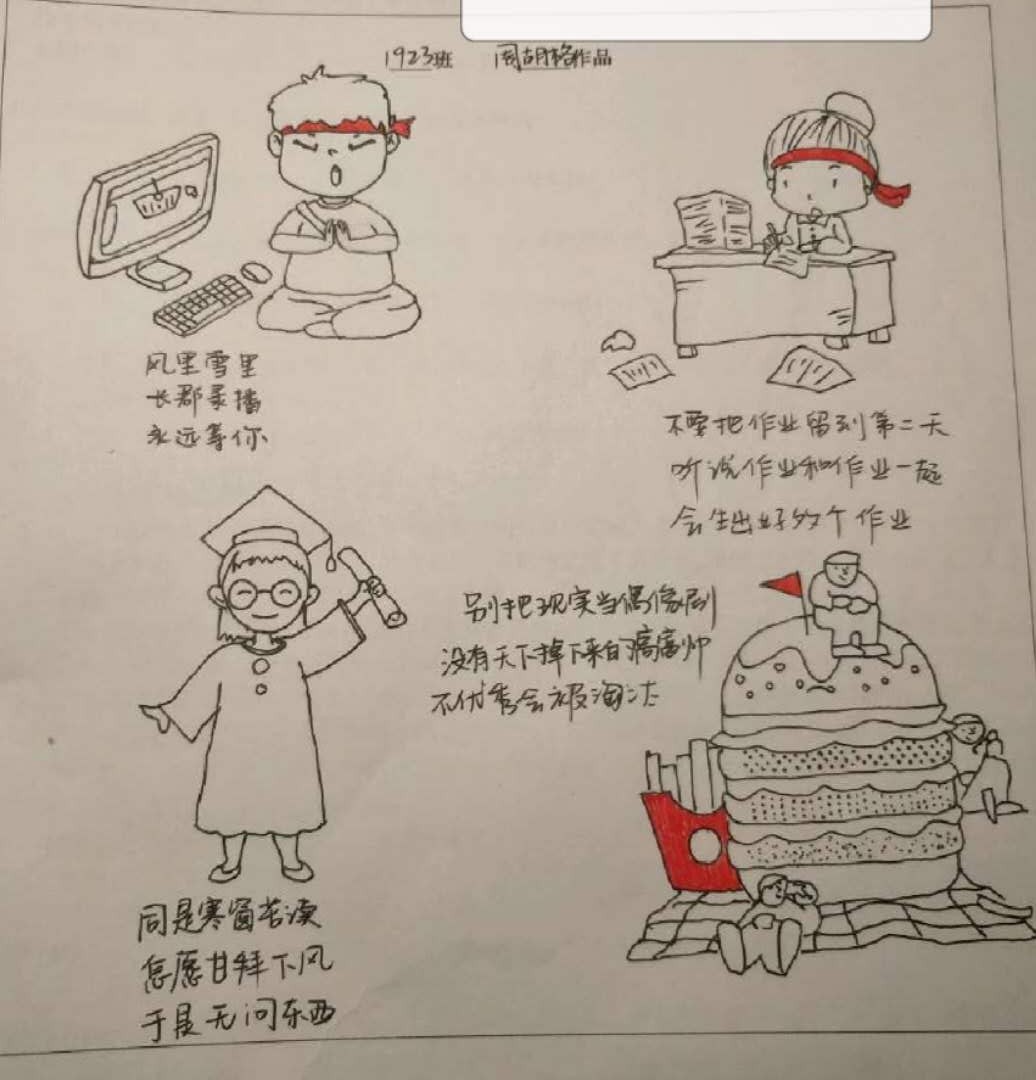 1923班 周胡格作品
风里雪里
长郡录播
永远等你
不要把作业留到第二天
听说作业和作业一起
会生出好多个作业
别把现实当偶像剧
没有天下掉下来的高富帅
不优秀会被淘汰
同是寒窗苦读
怎愿甘拜下风
于是无问东西